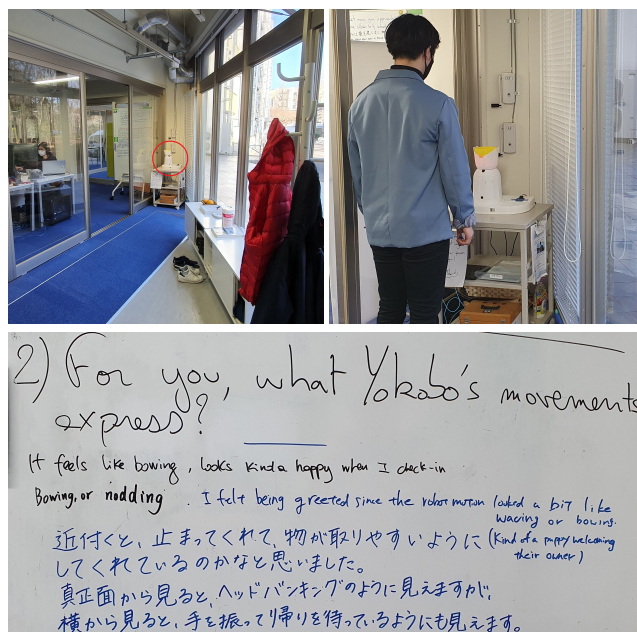 2) For you, what Yokobo's movements
express?
It feels like bowing, looks kinda happy when I check-in
Bowing, or nodding. I felt being greeted since the robot motion looked a bit like
waving or bowing.
(kind of a puppy welcoming
their owner)
近付くと、止まってくれて、物が取りやすいように
してくれているのかなと思いました。
真正面から見ると、ヘッドバンキングのように見えますが、
横から見ると、手を振って帰りを待っているようにも見えます。